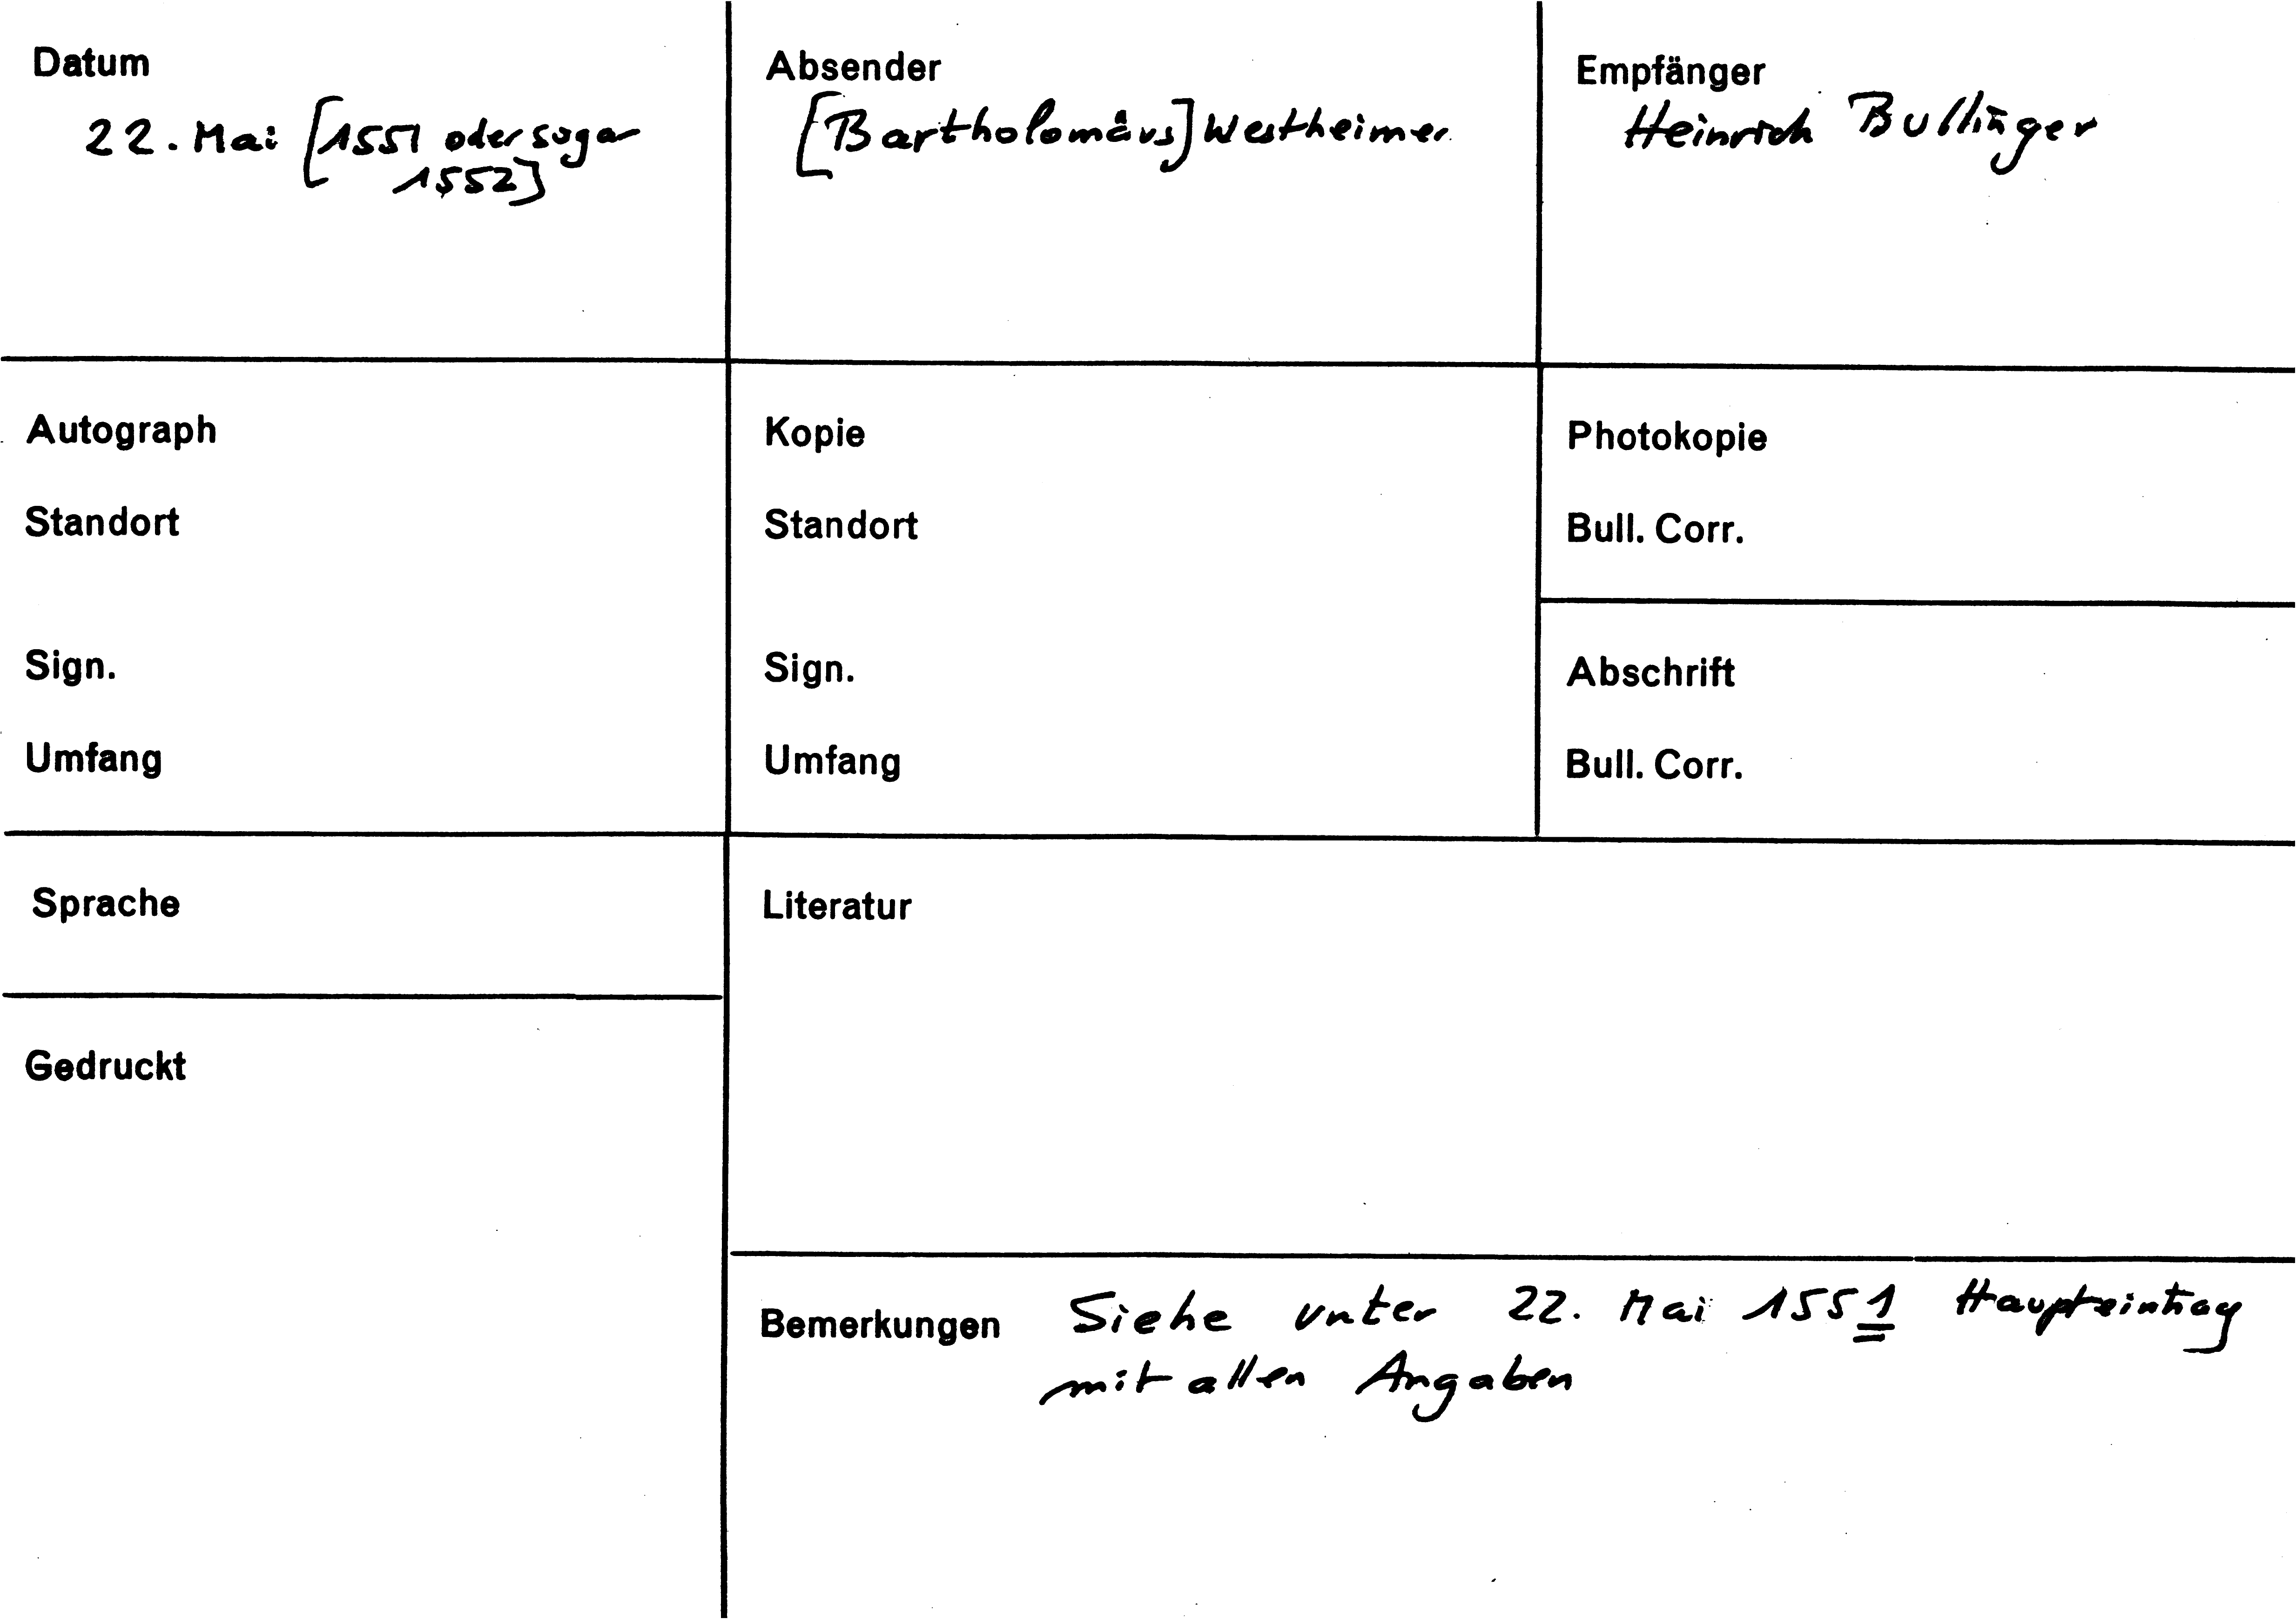 Datum
22. Mai [1551 oder sogar
1552]
Absender
[Bartholomäus] Westheimer
Empfänger
Heinrich Bullinger
Autograph
Standort
Sign.
Umfang
Kopie
Standort
Sign.
Umfang
Photokopie
Bull. Corr.
Abschrift
Bull. Corr.
Sprache
Gedruckt
Literatur
Bemerkungen Siehe unter 22. Mai 1551 Haupteintrag
mit allen Angaben